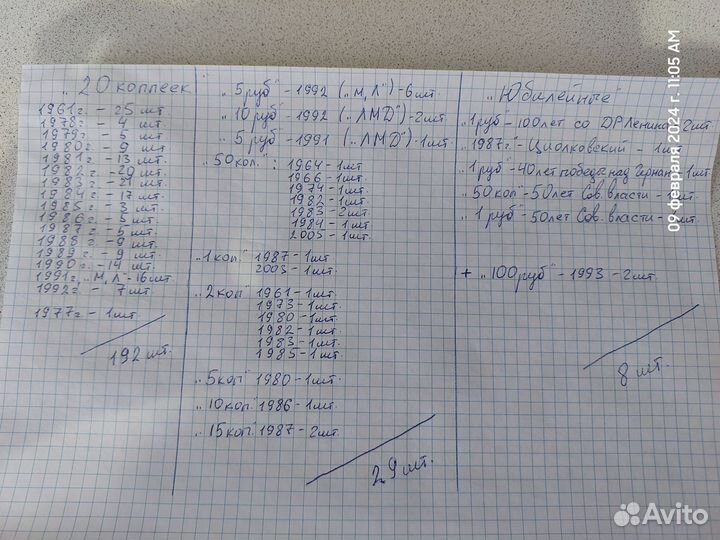 „20 копеек"
1961г. - 25 шт
1978г - 4 шт
1979г - 5 шт
1980г - 9 шт
1981г - 13 шт
1982г - 20 шт
1983г - 21 шт
1984г - 17 шт
1985г - 3 шт
1986г - 5 шт
1987г - 5 шт
1988г - 9 шт
1989г - 9 шт
1990г - 14 шт
1991г „М, Л" - 16 шт
1992г - 7 шт
1977г - 1 шт
192 шт.
„5 руб" - 1992 („М, Л") - 6 шт.
„10 руб" - 1992 („ЛМД") - 2 шт
„5 руб" - 1991 („ЛМД") - 1 шт.
„50 коп.": 1964 - 1 шт
1966 - 1 шт.
1974 - 1 шт
1982 - 1 шт
1983 - 2 шт
1984 - 1 шт
2003 - 1 шт.
„1 коп" 1987 - 1 шт
2003 - 1 шт.
„2 коп" 1961 - 1 шт.
1973 - 1 шт.
1980 - 1 шт
1982 - 1 шт.
1983 - 1 шт
1985 - 1 шт.
„5 коп" 1980 - 1 шт.
„10 коп." 1986 - 1 шт.
„15 коп." 1987 - 2 шт.
29 шт.
„Юбилейные"
„1 руб" - 100 лет со ДР Ленина - 2 шт
1987г - Циолковский - 1 шт
„1 руб" - 40 лет победы над Герман - 1 шт.
„50 коп" - 50 лет Сов. власти - шт.
„1 руб" - 50 лет Сов. власти - шт.
+ „100 руб" - 1993 - 2 шт.
8 шт.
09 февраля 2024 г. 11:05 AM
Avito